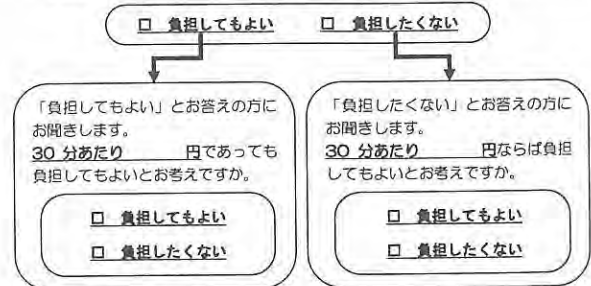 □ 負担してもよい □ 負担したくない
「負担してもよい」とお答えの方に
お聞きします。
30 分あたり 円であっても
負担してもよいとお考えですか。
□ 負担してもよい
□ 負担したくない
「負担したくない」とお答えの方に
お聞きします。
30 分あたり 円ならば負担
してもよいとお考えですか。
□ 負担してもよい
□ 負担したくない